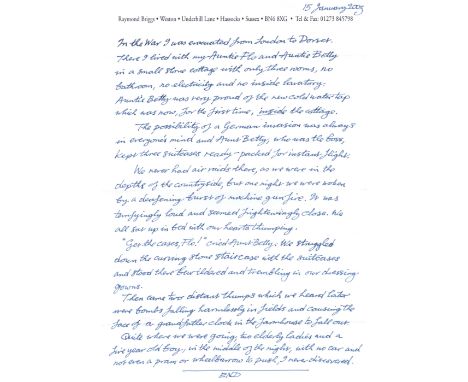 15 January 2003
Raymond Briggs • Weston • Underhill Lane • Hassocks • Sussex • BN6 8XG • Tel & Fax: 01273 845798
In the War I was evacuated from London to Dorset.
There I lived with my Auntie Flo and Auntie Betty
in a small stone cottage with only three rooms, no
bathroom, no electricity and no inside lavatory.
Auntie Betty was very proud of the new cold water tap
which was now, for the first time, inside the cottage.
The possibility of a German invasion was always
in everyone's mind and Aunt Betty, who was the boss,
kept three suitcases ready-packed for instant flight.
We never had air raids there, as we were in the
depths of the countryside, but one night we were woken
by a deafening burst of machine gun fire. It was
terrifyingly loud and seemed frighteningly close. We
all sat up in bed with our hearts thumping.
"Get the cases, Flo!" cried Aunt Betty. We struggled
down the curving stone staircase with the suitcases
and stood there bewildered and trembling in our dressing
gowns.
Then came two distant thumps which we heard later
were bombs falling harmlessly in fields and causing the
face of a grandfather clock in the farmhouse to fall out.
Quite where we were going, two elderly ladies and a
five year old boy, in the middle of the night, with no car and
not even a pram or wheelbarrow to push, I never discovered.
END